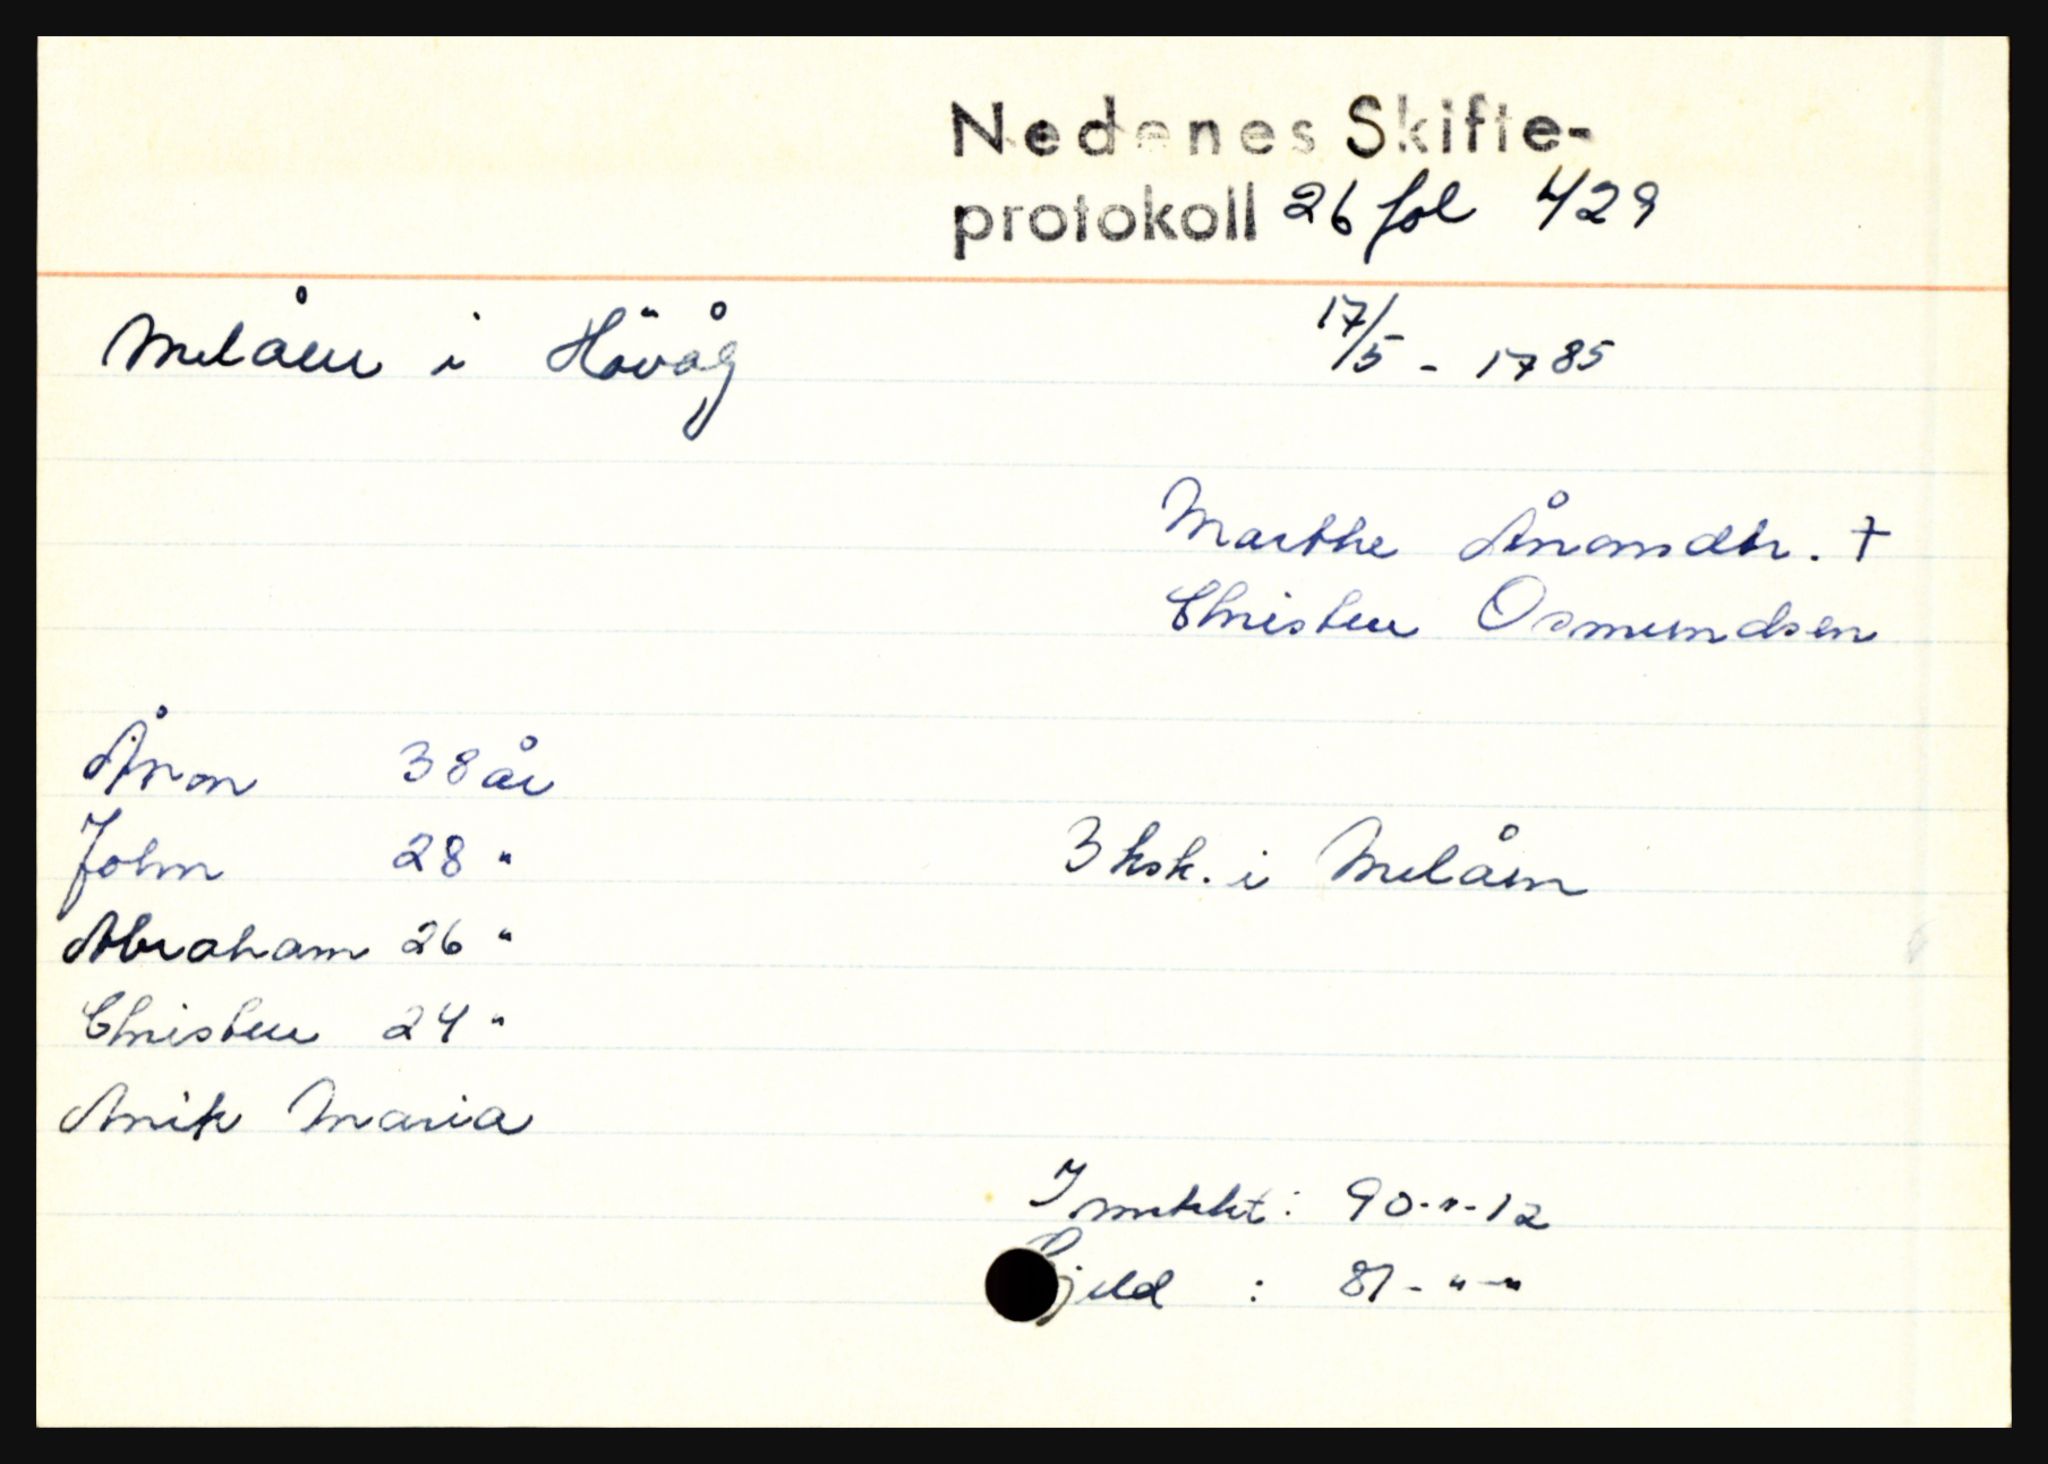 Nedenes Skifte-
protokoll 26 fol 429
Melåen i Hövåg 17/5 - 1785
Marthe Ånonsdtr. +
Christen Osmundsen
Ånon 38 år
John 28 "
3 hsk. i Melåen
Abraham 26 "
Christen 24 "
Anik Maria
Inntekt: 90-"-12
Gjeld : 81-"-"